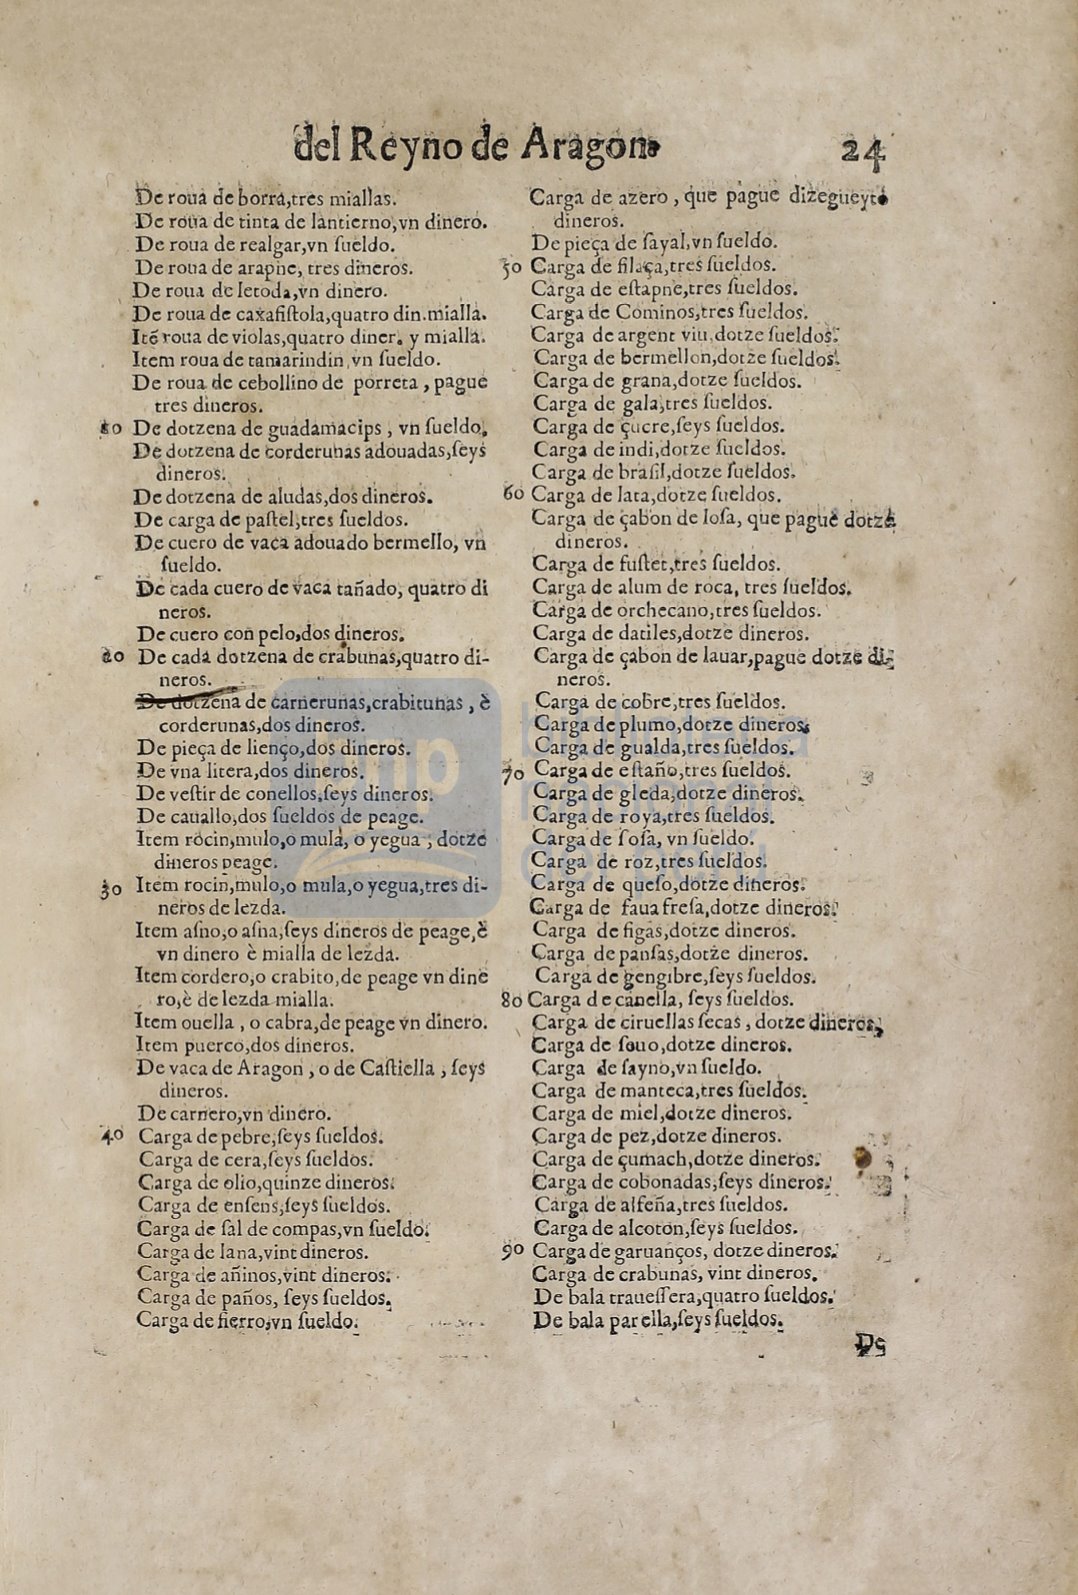 del Reyno de Aragon. 24
De roua de borra,tres miallas.
De roua de tinta de lantierno,vn dinero.
De roua de realgar,vn ſueldo.
De roua de arapne, tres dineros.
De roua de letoda,vn dinero.
De roua de caxafiſtola,quatro din.mialla.
Itē roua de violas,quatro diner. y mialla.
Item roua de tamarindin,vn ſueldo.
De roua de cebollino de porreta , pague
tres dineros.
10 De dotzena de guadamacips , vn ſueldo.
De dotzena de corderunas adouadas,ſeys
dineros.
De dotzena de aludas,dos dineros.
De carga de paſtel,tres ſueldos.
De cuero de vaca adouado bermello, vn
ſueldo.
De cada cuero de vaca tañado, quatro di
neros.
De cuero con pelo,dos dineros.
20 De cada dotzena de crabunas,quatro di-
neros.
De dotzena de carnerunas,crabitunas , è
corderunas,dos dineros.
De pieça de lienço,dos dineros.
De vna litera,dos dineros.
De veſtir de conellos,ſeys dineros.
De cauallo,dos ſueldos de peage.
Item rocin,mulo,o mula, o yegua , dotze
dineros peage.
30 Item rocin,mulo,o mula,o yegua,tres di-
neros de lezda.
Item aſno,o aſna,ſeys dineros de peage,è
vn dinero è mialla de lezda.
Item cordero,o crabito,de peage vn dine
ro,è de lezda mialla.
Item ouella , o cabra,de peage vn dinero.
Item puerco,dos dineros.
De vaca de Aragon , o de Caſtiella , ſeys
dineros.
De carnero,vn dinero.
40 Carga de pebre,ſeys ſueldos.
Carga de cera,ſeys ſueldos.
Carga de olio,quinze dineros.
Carga de enſens,ſeys ſueldos.
Carga de ſal de compas,vn ſueldo.
Carga de lana,vint dineros.
Carga de añinos,vint dineros.
Carga de paños, ſeys ſueldos.
Carga de fierro,vn ſueldo.
Carga de azero , que pague dizegueyto
dineros.
De pieça de ſayal,vn ſueldo.
50 Carga de filaça,tres ſueldos.
Carga de eſtapne,tres ſueldos.
Carga de Cominos,tres ſueldos.
Carga de argent viu,dotze ſueldos.
Carga de bermellon,dotze ſueldos.
Carga de grana,dotze ſueldos.
Carga de gala,tres ſueldos.
Carga de çucre,ſeys ſueldos.
Carga de indi,dotze ſueldos.
Carga de braſil,dotze ſueldos.
60 Carga de laca,dotze ſueldos.
Carga de çabon de loſa, que pague dotze
dineros.
Carga de fuſtet,tres ſueldos.
Carga de alum de roca, tres ſueldos.
Carga de orchecano,tres ſueldos.
Carga de datiles,dotze dineros.
Carga de çabon de lauar,pague dotze di-
neros.
Carga de cobre,tres ſueldos.
Carga de plumo,dotze dineros.
Carga de gualda,tres ſueldos.
70 Carga de eſtaño,tres ſueldos.
Carga de gleda,dotze dineros.
Carga de roya,tres ſueldos.
Carga de ſoſa, vn ſueldo.
Carga de roz,tres ſueldos.
Carga de queſo,dotze dineros.
Carga de faua freſa,dotze dineros.
Carga de figas,dotze dineros.
Carga de panſas,dotze dineros.
Carga de gengibre,ſeys ſueldos.
80 Carga de canella, ſeys ſueldos.
Carga de ciruellas ſecas , dotze dineros.
Carga de ſouo,dotze dineros.
Carga de ſayno,vn ſueldo.
Carga de manteca,tres ſueldos.
Carga de miel,dotze dineros.
Carga de pez,dotze dineros.
Carga de çumach,dotze dineros.
Carga de cobonadas,ſeys dineros.
Carga de alfeña,tres ſueldos.
Carga de alcoton,ſeys ſueldos.
90 Carga de garuanços, dotze dineros.
Carga de crabunas, vint dineros.
De bala traueſſera,quatro ſueldos.
De bala parella,ſeys ſueldos.
De
bnp
biblioteca
nacional
del perú